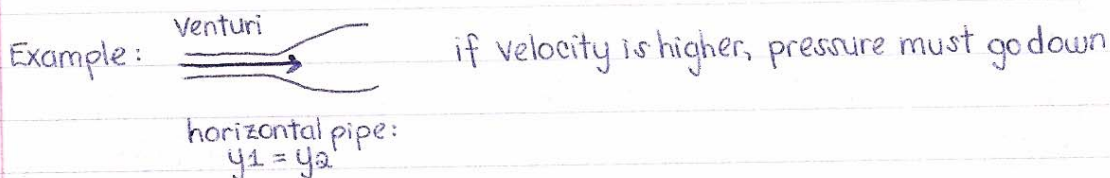 venturi
Example: if velocity is higher, pressure must go down
horizontal pipe:
y1 = y2